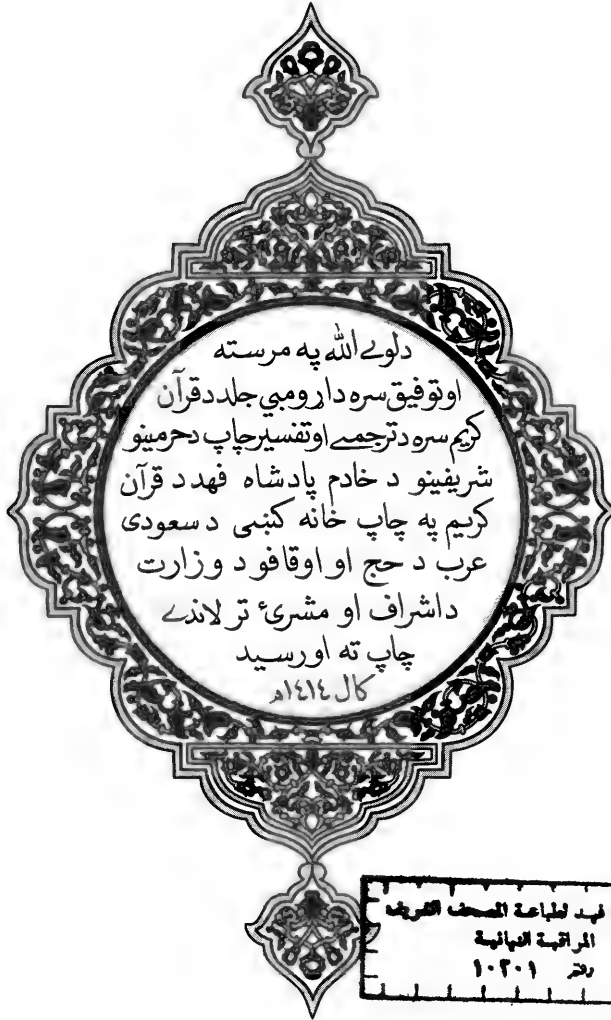 دلوے الله په مرسته
اوتوفيق سره داړومبي جلد دقرآن
کريم سره دترجمے اوتفسير چاپ دحرمينو
شريفينو د خادم پادشاه فهد د قرآن
کريم په چاپ خانه کښی د سعودی
عرب د حج او اوقافو د وزارت
داشراف او مشرئ تر لاندے
چاپ ته اورسيد
کال ١٤١٤هـ
فهد لطباعة المصحف الشريف
المراقبة النهائية
دفتر ١٠٣٠١